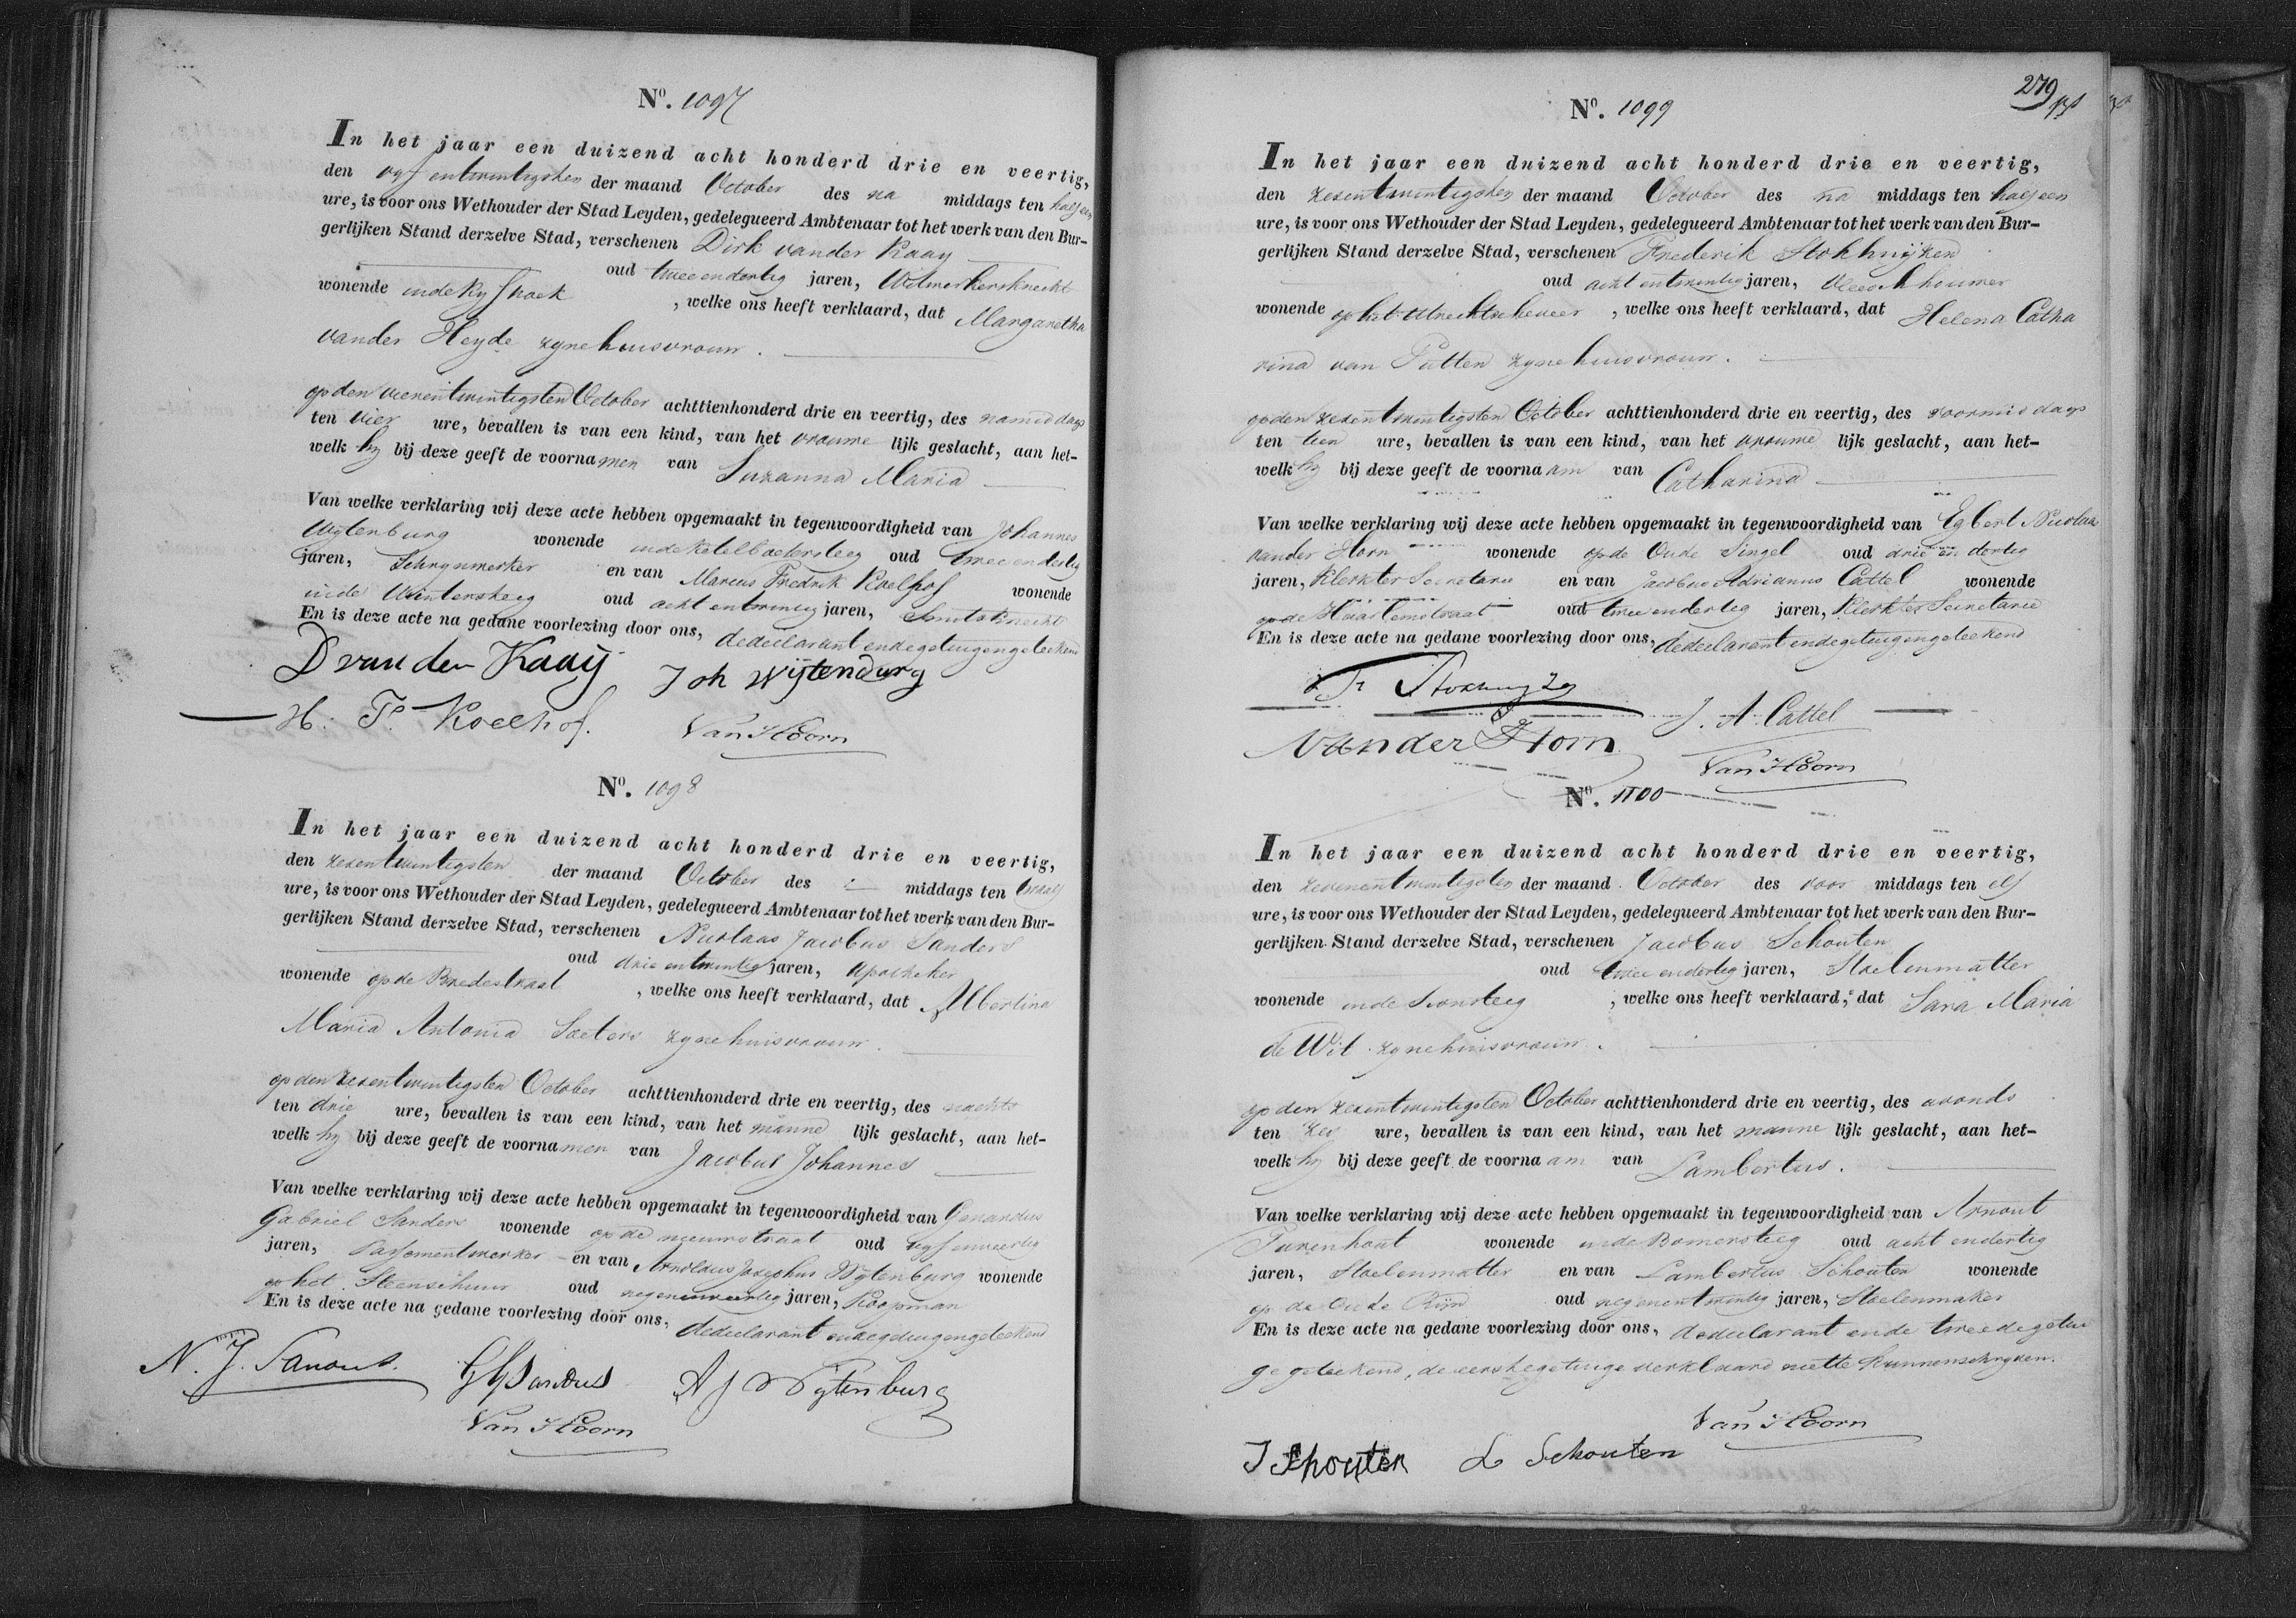 No. 1097
In het jaar een duizend acht honderd drie en veertig,
den vyf entwintigsten der maand October des na middags ten half een
ure, is voor ons Wethouder der Stad Leyden, gedelegueerd Ambtenaar tot het werk van den Bur-
gerlijken Stand derzelve Stad, verschenen Dirk vander Kaay
oud twee endertig jaren,
wonende inde , welke ons heeft verklaard, dat Margaretha
vander Heyde zyne huisvrouw.
op den vierentwintigsten October achttienhonderd drie en veertig, des namiddags
ten vier ure, bevallen is van een kind, van het vrouwe lijk geslacht, aan het-
welk hy bij deze geeft de voornamen van Suzanna Maria
Van welke verklaring wij deze acte hebben opgemaakt in tegenwoordigheid van Johannes
Wytenburg wonende inde Ketelboetersteeg oud twee endertig
jaren, Schrynwerker en van Marcus Fredrik Koelhof wonende
inde Wintersteeg oud acht entwintig jaren, Smitsknecht
En is deze acte na gedane voorlezing door ons, dedeclarant endegetuigengeteekend
D van der Kaaij Joh Wijtenburg
H. F. Koelhof. Van Hoorn
No. 1098
In het jaar een duizend acht honderd drie en veertig,
den zesentwintigsten der maand October des - middags ten twaalf
ure, is voor ons Wethouder der Stad Leyden, gedelegueerd Ambtenaar tot het werk van den Bur-
gerlijken Stand derzelve Stad, verschenen Nicolaas Jacobus Sanders
oud drie entwintig jaren, Apotheker
wonende op de Bredestraat , welke ons heeft verklaard, dat Albertina
Maria Antonia Soeters zyne huisvrouw.
op den zesentwintigsten October achttienhonderd drie en veertig, des nachts
ten drie ure, bevallen is van een kind, van het manne lijk geslacht, aan het-
welk hy bij deze geeft de voornamen van Jacobus Johannes
Van welke verklaring wij deze acte hebben opgemaakt in tegenwoordigheid van Gerardus
Gabriel Sanders wonende op de nieuwstraat oud vyf enveertig
jaren, Passementwerker en van Arnoldus Josephus Wytenburg wonende
op het Steenschuur oud negenenveertig jaren, Koopman
En is deze acte na gedane voorlezing door ons, dedeclarant endegetuigengeteekend
N. J. Sanders. GG Sanders A J Wytenburg
Van Hoorn
279
No. 1099
In het jaar een duizend acht honderd drie en veertig,
den zesentwintigsten der maand October des na middags ten half een
ure, is voor ons Wethouder der Stad Leyden, gedelegueerd Ambtenaar tot het werk van den Bur-
gerlijken Stand derzelve Stad, verschenen Frederik Stokhuijzen
oud acht entwintig jaren, Vleeschhouwer
wonende op het Utrechtscheveer , welke ons heeft verklaard, dat Helena Catha
rina van Putten zyne huisvrouw.
op den zesentwintigsten October achttienhonderd drie en veertig, des voormiddags
ten tien ure, bevallen is van een kind, van het vrouwe lijk geslacht, aan het-
welk hy bij deze geeft de voornaam van Catharina
Van welke verklaring wij deze acte hebben opgemaakt in tegenwoordigheid van Egbert Nicolaas
vander Horn wonende op de Oude Singel oud drie en dertig
jaren, Klerk ter Secretarie en van Jacobus Adrianus Cattel wonende
op de Haarlemstraat oud twee endertig jaren, Klerk ter Secretarie
En is deze acte na gedane voorlezing door ons, dedeclarant endegetuigengeteekend
J. A. Cattel
Van der Horn
Van Hoorn
No. 1100
In het jaar een duizend acht honderd drie en veertig,
den zevenentwintigsten der maand October des voor middags ten elf
ure, is voor ons Wethouder der Stad Leyden, gedelegueerd Ambtenaar tot het werk van den Bur-
gerlijken Stand derzelve Stad, verschenen Jacobus Schouten
oud twee endertig jaren, Stoelenmatter
wonende inde , welke ons heeft verklaard, dat Sara Maria
de Wit zyne huisvrouw.
op den zesentwintigsten October achttienhonderd drie en veertig, des avonds
ten zes ure, bevallen is van een kind, van het manne lijk geslacht, aan het-
welk hy bij deze geeft de voornaam van Lambertus.
Van welke verklaring wij deze acte hebben opgemaakt in tegenwoordigheid van Arnout
Turenhout wonende inde Romersteeg oud acht endertig
jaren, Stoelenmatter en van Lambertus Schouten wonende
op de Oude Rijn oud negenentwintig jaren, Stoelenmaker
En is deze acte na gedane voorlezing door ons, dedeclarant ende tweede getui
ge geteekend, de eerste getuige verklaard niet te kunnen schryven.
Van Hoorn
J Schouten L Schouten